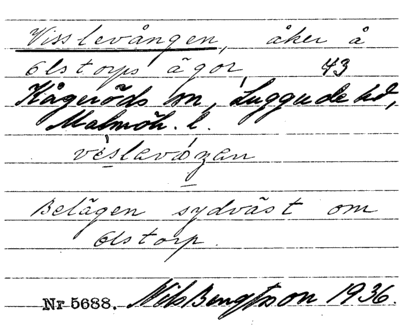 Visslevången, åker å
Olstorps ägor, 43
Kågeröds sn, Luggude hd,
Malmöh. l.
Belägen sydväst om
Olstorp.
Nr 5688. Nils Bengtsson 1936.